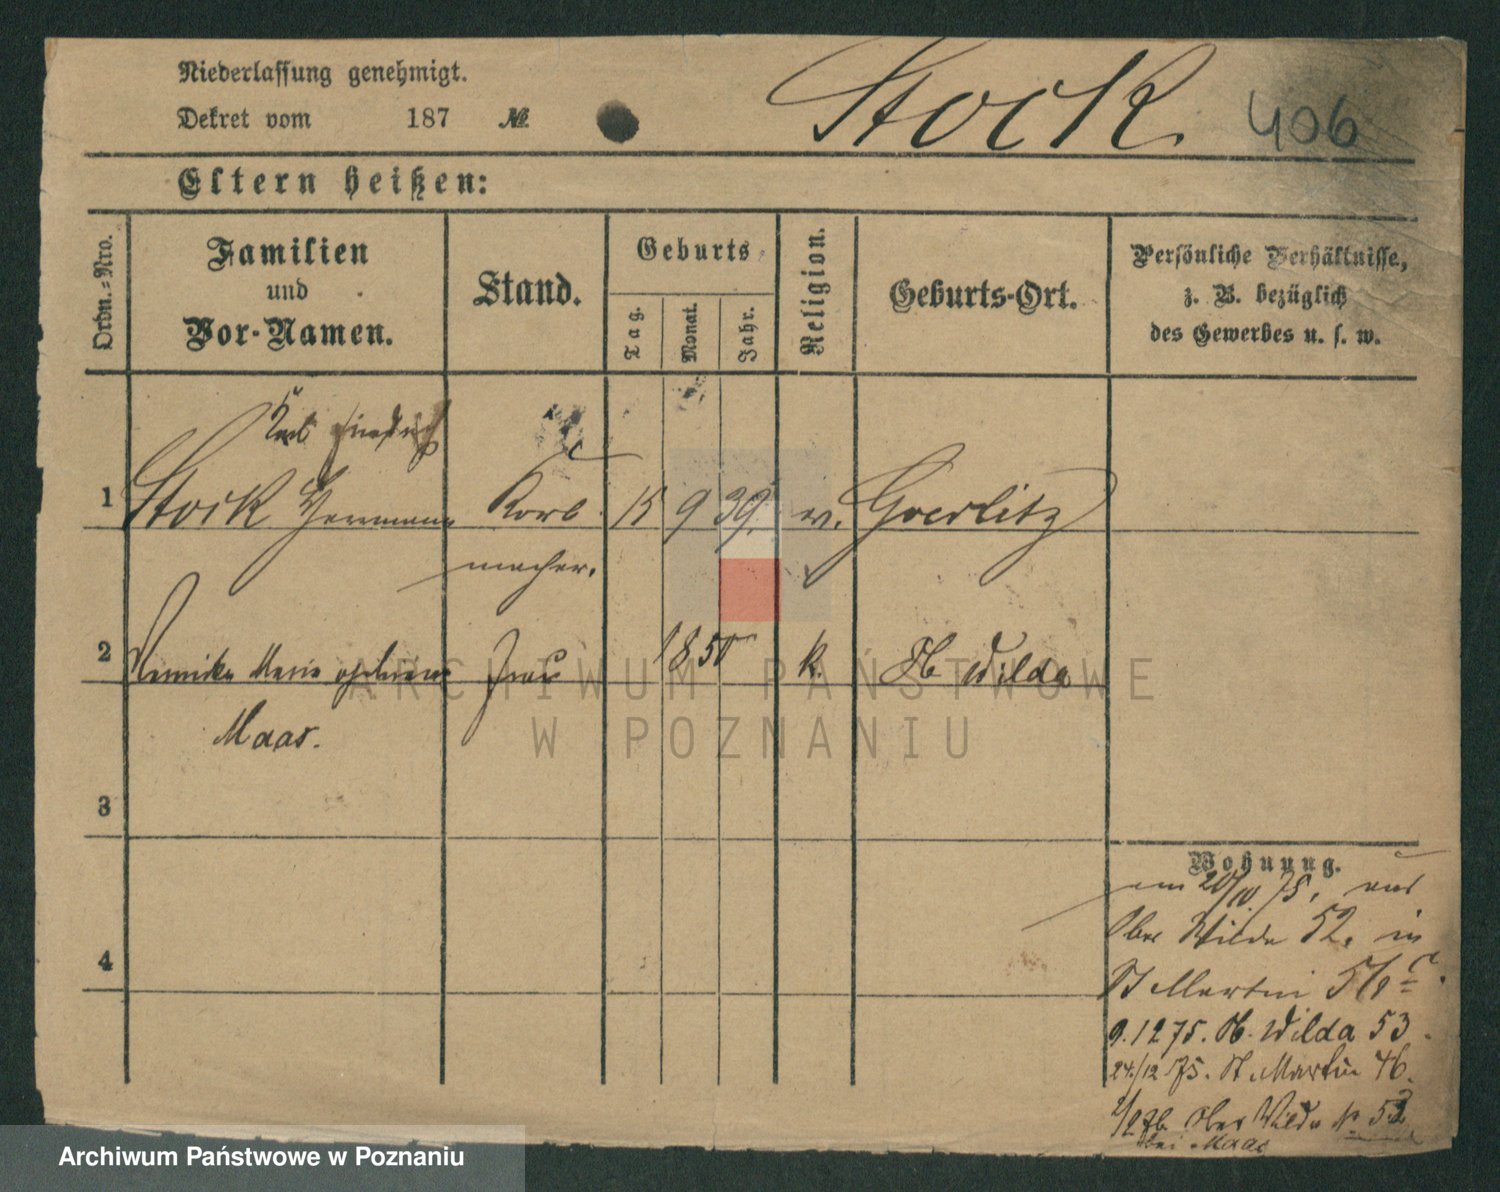 Niederlassung genehmigt.
Dekret vom 187 №
Stock. 406
Eltern heißen:
Ordn.-Nro.
Familien
und
Vor-Namen.
Stand.
Geburts
Tag.
Monat.
Jahr.
Religion.
Geburts-Ort.
Persönliche Verhältnisse,
z. B. bezüglich
des Gewerbes u. s. w.
Karl Friedrich
1 Stock Herrmann Korb 15 9 39. ev. Goerlitz
macher.
2 Marie geborene Frau 1850 k. Ob Wilda
Maas.
3
4
Wohnung.
am 20/10 75. aus
Ober Wilda 52. in
St Martin
9.12 75. Ob. Wilda 53.
24/12 75. St. Martin 46.
2/2 76. Ober Wilda № 53
bei Maas
ARCHIWUM PAŃSTWOWE
W POZNANIU
Archiwum Państwowe w Poznaniu